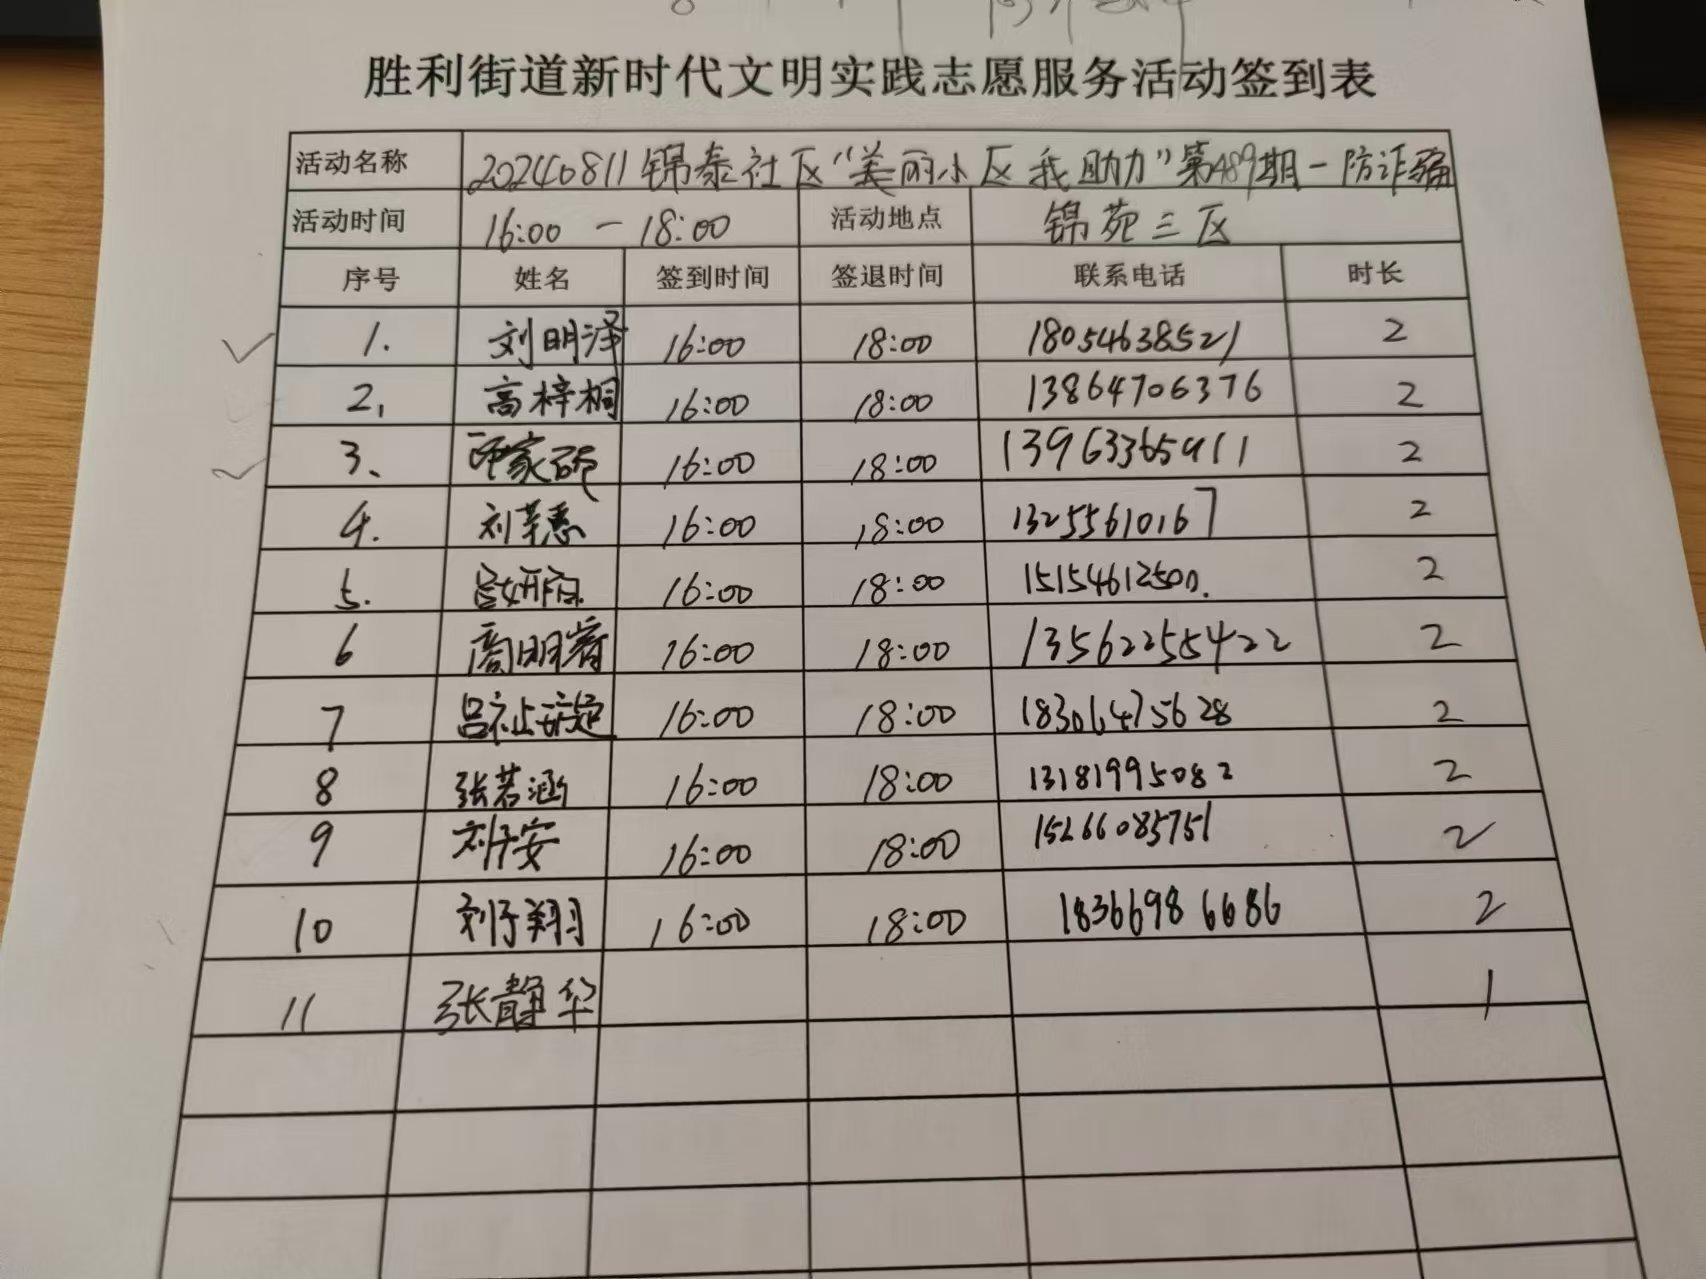 胜利街道新时代文明实践志愿服务活动签到表
活动名称 20240811锦泰社区“美丽小区我助力”第489期-防诈骗
活动时间 16:00-18:00 活动地点 锦苑三区
序号 姓名 签到时间 签退时间 联系电话 时长
1. 刘明泽 16:00 18:00 18054638521 2
2. 高梓桐 16:00 18:00 13864706376 2
3、 16:00 18:00 13963365911 2
4. 16:00 18:00 13255610167 2
5. 16:00 18:00 15154612500. 2
6 周明睿 16:00 18:00 13562255422 2
7 16:00 18:00 18306475628 2
8 张若涵 16:00 18:00 13181995082 2
9 刘子安 16:00 18:00 15266085751 2
10 刘子翔 16:00 18:00 18366986686 2
11 张静华 1